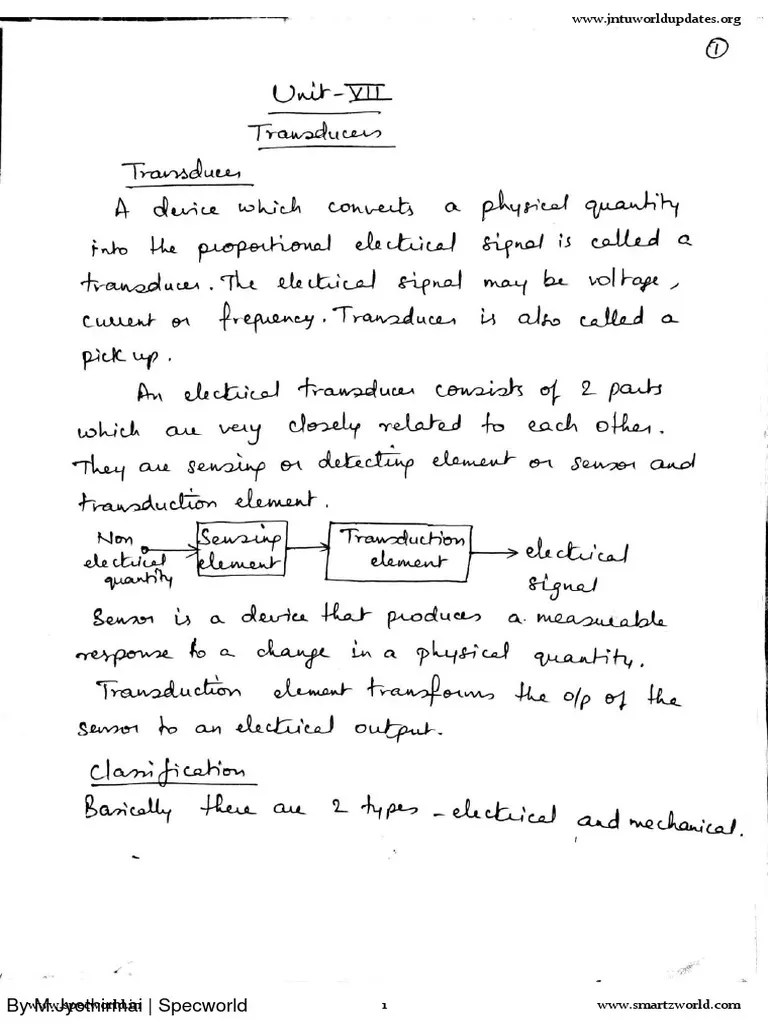 www.jntuworldupdates.org
1
Unit-VII
Transducers
Transducer
A device which converts a physical quantity
into the proportional electrical signal is called a
transducer. The electrical signal may be voltage,
current or frequency. Transducer is also called a
pick up.
An electrical transducer consists of 2 parts
which are very closely related to each other.
They are sensing or detecting element or sensor and
transduction element.
Non electrical quantity
Sensing element
Transduction element
electrical signal
Sensor is a device that produces a measurable
response to a change in a physical quantity.
Transduction element transforms the o/p of the
sensor to an electrical output.
Classification
Basically there are 2 types - electrical and mechanical.
By M.Jyothirmai | Specworld
1
www.smartzworld.com